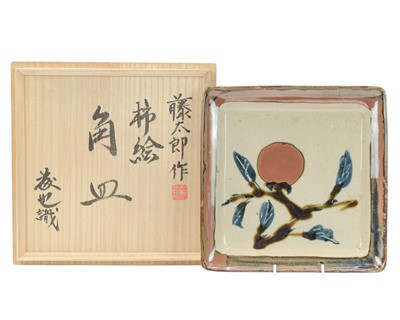 藤太郎作
柿絵
角皿
敏也識